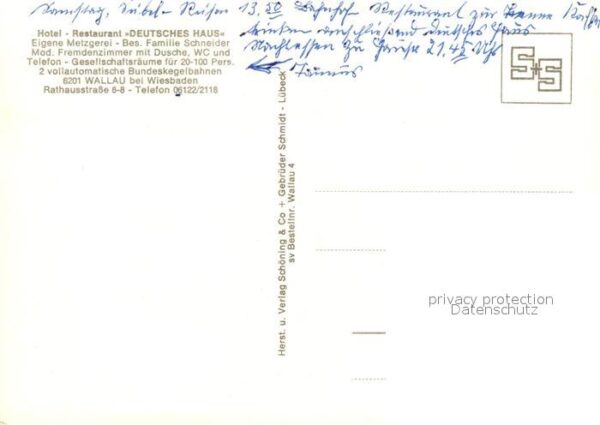 Samstag, Kübel-Reisen 13.50 Bahnhof Restaurant zur Kanne Kaffee
trinken anschließend deutsches Haus
Nachtessen zu Hause 21.45 Uhr
Taunus
Hotel - Restaurant »DEUTSCHES HAUS«
Eigene Metzgerei - Bes. Familie Schneider
Mod. Fremdenzimmer mit Dusche, WC und
Telefon - Gesellschaftsräume für 20-100 Pers.
2 vollautomatische Bundeskegelbahnen
6201 WALLAU bei Wiesbaden
Rathausstraße 6-8 - Telefon 06122/2118
Herst. u. Verlag Schöning & Co + Gebrüder Schmidt - Lübeck
sv Bestellnr. Wallau 4
S+S
privacy protection
Datenschutz